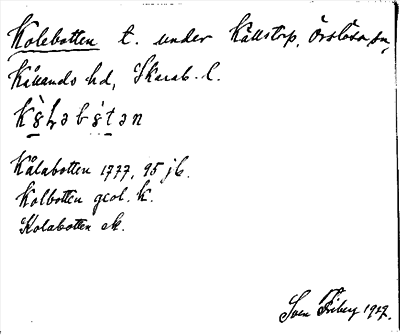 Kolebotten t. under Källstrp, Örslösa sn,
Kållands hd, Skarab. l.
Kålabotten 1777, 95 jb.
Kolbotten geol. k.
Kolabotten ek.
Sven Friberg 1927.